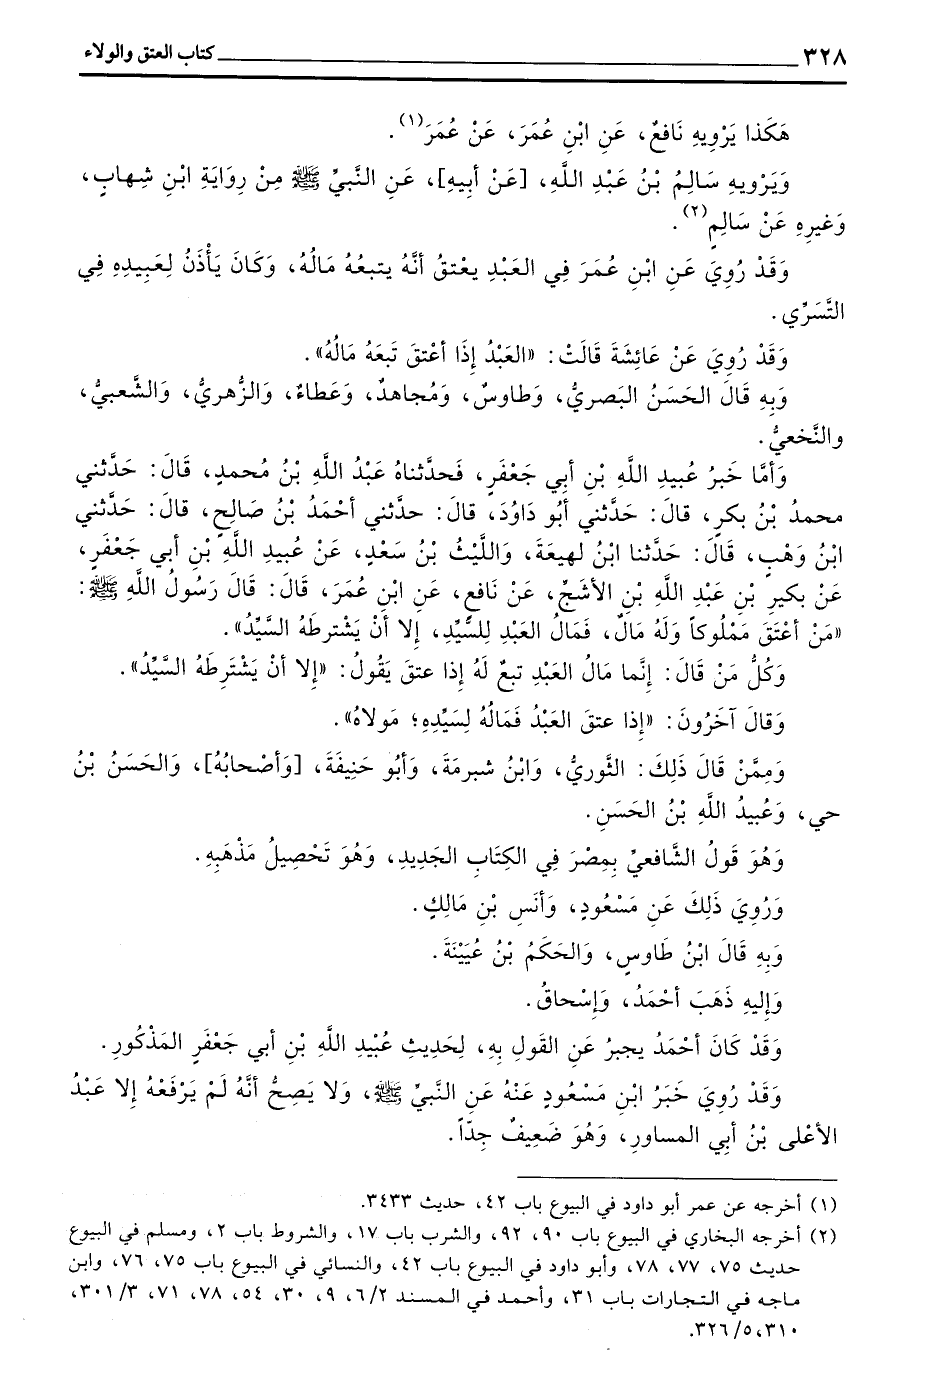 ٣٢٨ كتاب العتق والولاء
هَكَذا يَرْوِيهِ نَافعٌ، عَنِ ابْنِ عُمَرَ، عَنْ عُمَرَ(١).
وَيَرْويهِ سَالِمُ بْنُ عَبْدِ اللَّهِ، [عَنْ أبِيهِ]، عَنِ النَّبيِّ ﷺ مِنْ رِوَايَةِ ابْنِ شِهابٍ،
وَغيرِهِ عَنْ سَالِمٍ(٢).
وَقَدْ رُوِيَ عَنِ ابْنِ عُمَرَ فِي العَبْدِ يعْتقُ أنَّهُ يتبعُهُ مَالُهُ، وَكَانَ يَأْذَنُ لعَبِيدِهِ فِي
التَّسَرِّي.
وَقَدْ رُوِيَ عَنْ عَائِشَةَ قَالَتْ: «العَبْدُ إِذَا أعْتقَ تَبعَهُ مَالُهُ».
وَبِهِ قَالَ الحَسَنُ البَصريُّ، وَطاوسٌ، وَمُجاهدٌ، وَعَطاءٌ، وَالزُّهريُّ، وَالشَّعبيُّ،
والنَّخعيُّ.
وَأمَّا خَبرُ عُبيدِ اللَّهِ بْنِ أبي جَعْفَرٍ، فَحدَّثناهُ عَبْدُ اللَّهِ بْنُ مُحمدٍ، قَالَ: حَدَّثني
محمدُ بْنُ بكرٍ، قالَ: حَدَّثني أبُو دَاوُدَ، قالَ: حدَّثني أحْمَدُ بْنُ صَالحٍ، قالَ: حَدَّثني
ابْنُ وَهْبٍ، قَالَ: حَدَّثنا ابْنُ لهيعَةَ، وَاللَّيْثُ بْنُ سَعْدٍ، عَنْ عُبيدِ اللَّهِ بْنِ أبي جَعْفَرٍ،
عَنْ بكيرِ بْنِ عَبْدِ اللَّهِ بْنِ الأشَجِّ، عَنْ نَافعٍ، عَنِ ابْنِ عُمَرَ، قَالَ: قَالَ رَسُولُ اللَّهِ ﷺ:
«مَنْ أعْتَقَ مَمْلُوكاً وَلَهُ مَالٌ، فَمَالُ العَبْدِ لِلسَّيِّدِ، إِلا أنْ يَشْترِطَهُ السَّيِّدُ».
وَكُلُّ مَنْ قَالَ: إِنَّما مَالُ العَبْدِ تبعٌ لَهُ إِذا عتقَ يَقُولُ: «إِلا أنْ يَشْتَرِطَهُ السَّيِّدُ».
وَقالَ آخَرُونَ: «إِذا عتقَ العَبْدُ فَمَالُهُ لِسَيِّدِهِ؛ مَولاهُ».
وَمِمَّنْ قَالَ ذَلِكَ: الثَّوريُّ، وَابْنُ شبرمَةَ، وَأبُو حَنِيفَةَ، [وَأصْحابُهُ]، وَالحَسَنُ بْنُ
حي، وَعُبيدُ اللَّهِ بْنُ الحَسَنِ.
وَهُوَ قَولُ الشَّافعيِّ بِمِصْرَ فِي الكِتَابِ الجَدِيدِ، وَهُوَ تَحْصِيلُ مَذْهَبِهِ.
وَرُوِيَ ذَلِكَ عَنِ مَسْعُودٍ، وَأنَسِ بْنِ مَالِكٍ.
وَبِهِ قَالَ ابْنُ طَاوسٍ، وَالحَكَمُ بْنُ عُيَيْنَةَ.
وَإِليهِ ذَهَبَ أحْمَدُ، وَإِسْحاقُ.
وَقَدْ كَانَ أحْمَدُ يجبرُ عَنِ القَولِ بِهِ، لِحَديثِ عُبْيدِ اللَّهِ بْنِ أبي جَعْفَرٍ المَذْكُورِ.
وَقَدْ رُوِيَ خَبَرُ ابْنِ مَسْعُودٍ عَنْهُ عَنِ النَّبيِّ ﷺ، وَلا يَصِحُّ أنَّهُ لَمْ يَرْفَعْهُ إِلا عَبْدُ
الأعْلى بْنُ أبي المساورِ، وَهُوَ ضَعِيفٌ جِدّاً.
(١) أخرجه عن عمر أبو داود في البيوع باب ٤٢، حديث ٣٤٣٣.
(٢) أخرجه البخاري في البيوع باب ٩٠، ٩٢، والشرب باب ١٧، والشروط باب ٢، ومسلم في البيوع
حديث ٧٥، ٧٧، ٧٨، وأبو داود في البيوع باب ٤٢، والنسائي في البيوع باب ٧٥، ٧٦، وابن
ماجه في التجارات باب ٣١، وأحمد في المسند ٦/٢، ٩، ٣٠، ٥٤، ٧٨، ٧١، ٣٠١/٣،
٣١٠، ٣٢٦/٥.